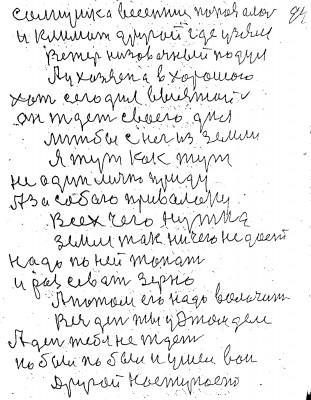 94
солнышка весенние порой алог
ы климат другой где узяли
Ветер низовочный подул
А у хозяена в хорошою
хоть сегодня
он ждет своего дня
штобы снег из земли
Я тут как тут
не один лично приду
А за собою приволоку
Всех чего нужна
земля так ничего не дает
надо по ней топат
и рассеват зерно
А потом его надо волочит
Веч ден ты у этом деле
А ден тебя не ждет
побыл побыл и ушел вон
Другой наступает